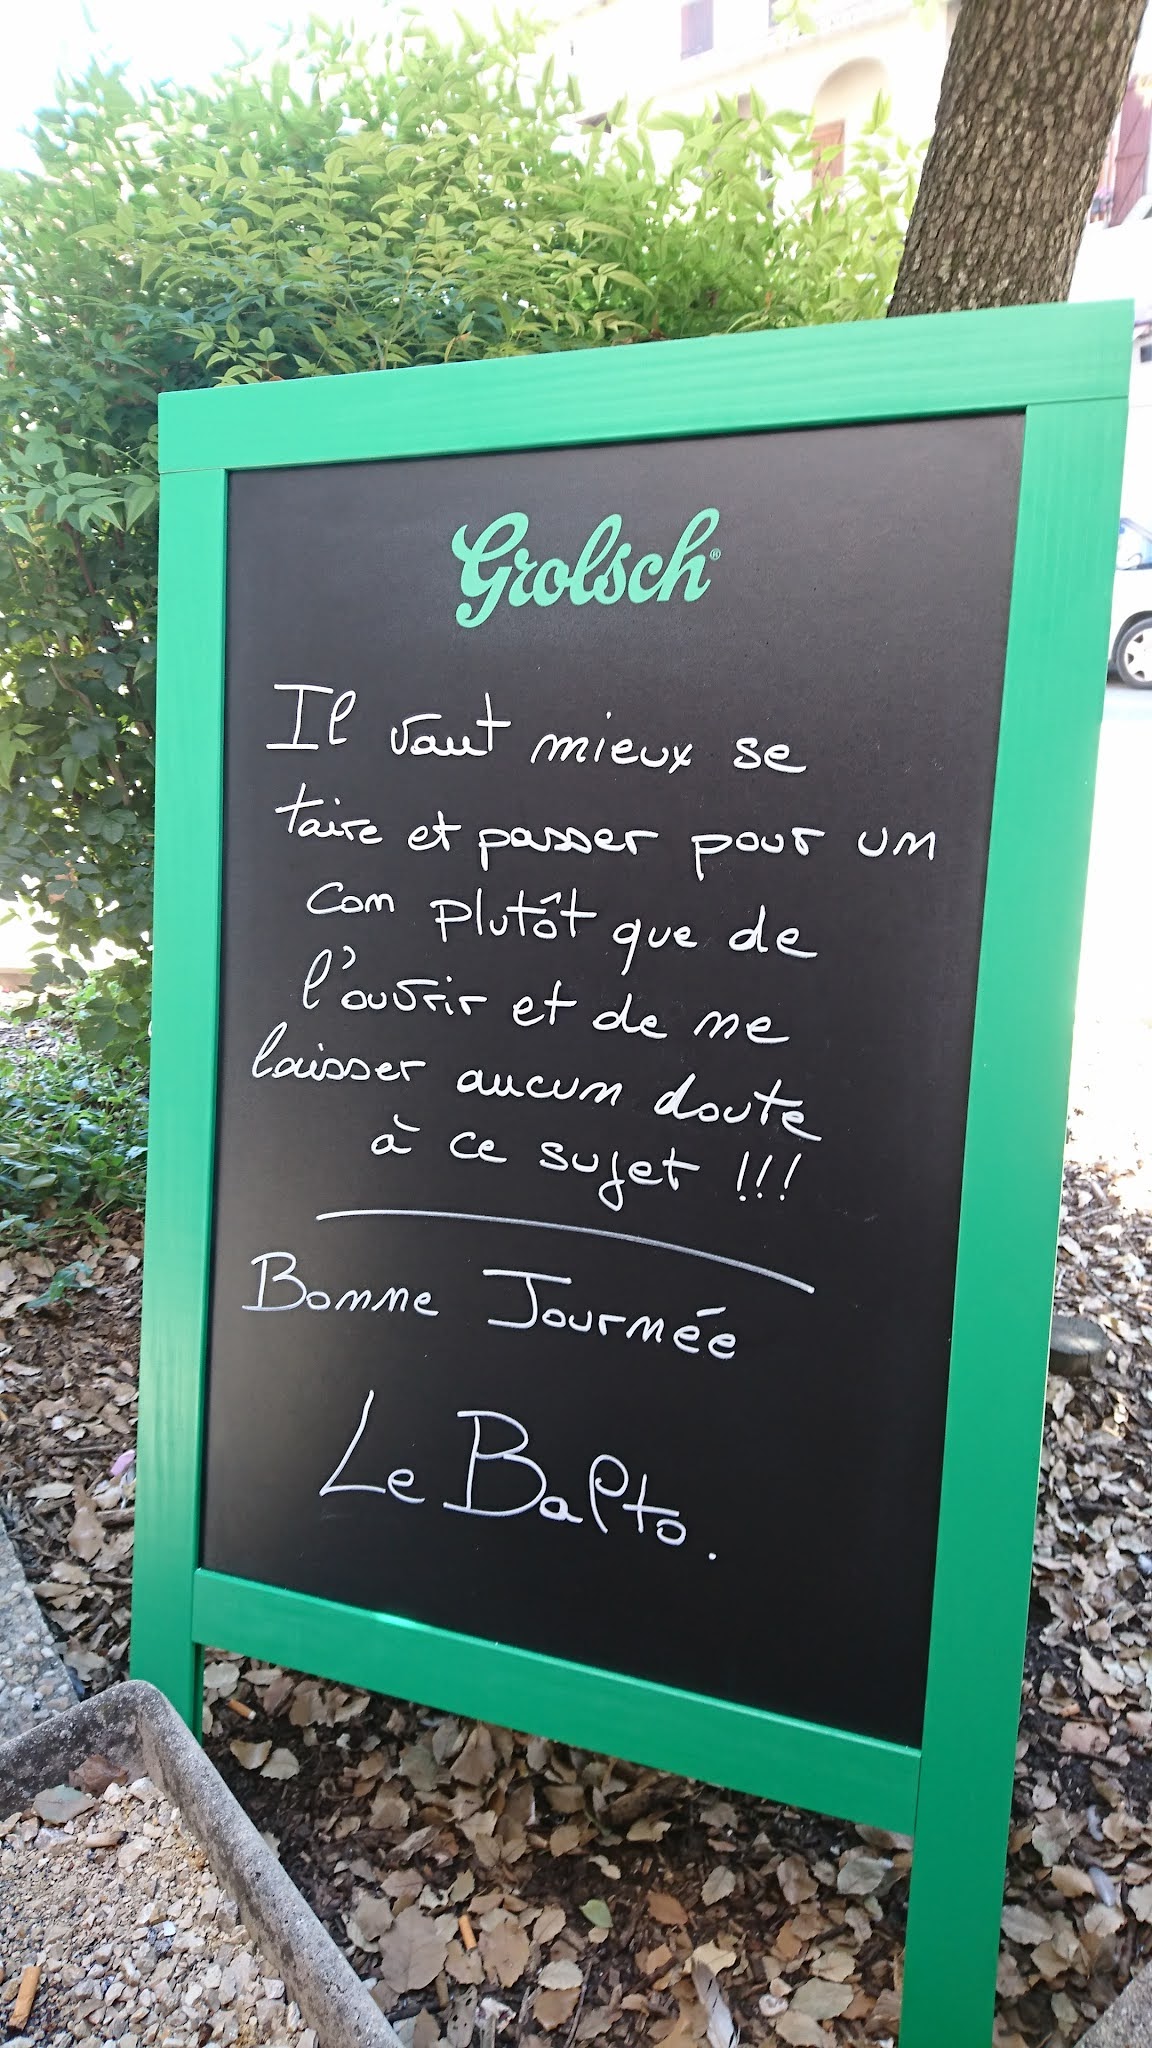 Grolsch®
Il vaut mieux se
taire et passer pour un
con plutôt que de
l'ouvrir et de ne
laisser aucun doute
à ce sujet !!!
Bonne Journée
Le Balto.